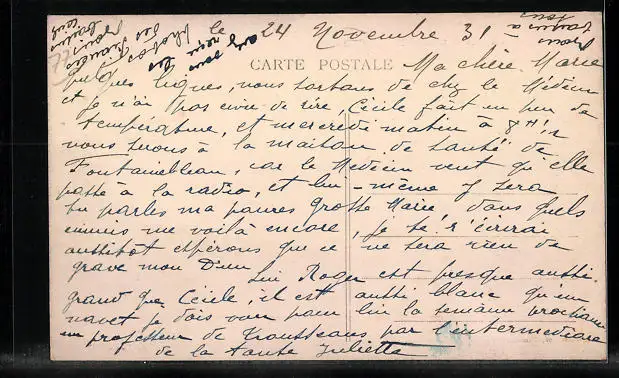 le 24 Novembre 31
CARTE POSTALE
Ma chère Marie
quelques lignes, nous sortons de chez le Médecin
et je n'ai pas envie de rire, Cécile fait un peu de
température, et mercredi matin à 8H ½
nous serons à la maison de Santé de
Fontainebleau, car le Médecin veut qu'elle
passe à la radio, et lui-même y sera
tu parles ma pauvre Grosse Marie, dans quels
ennuis me voilà encore, je te r'écrirai
aussitôt espérons que ce ne sera rien de
grave mon Dieu
Lui Roger est presque aussi
grand que Cécile, il est aussi blanc qu'un
navet je dois voir pour lui la semaine prochaine
un professeur de Trousseau par l'intermédiaire
de la tante Juliette